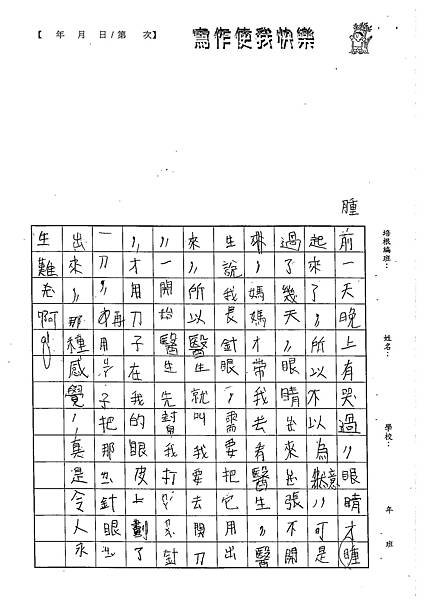 【 年 月 日/第 次】
寫作使我快樂
培根編班：
姓名：
學校：
年 班
腫
前一天晚上有哭過，眼睛才腫
起來了，所以不以為意，可是
過了幾天眼睛出來張不開
，媽媽才帶我去看醫生，醫
生說我長針眼，需要把它用出
來，所以醫生就叫我要去開刀
，一開始醫生先幫我打針
，才用刀子在我的眼皮上劃了
一刀，再用子把那針眼
出來，那種感覺，真是令人永
生難忘啊！